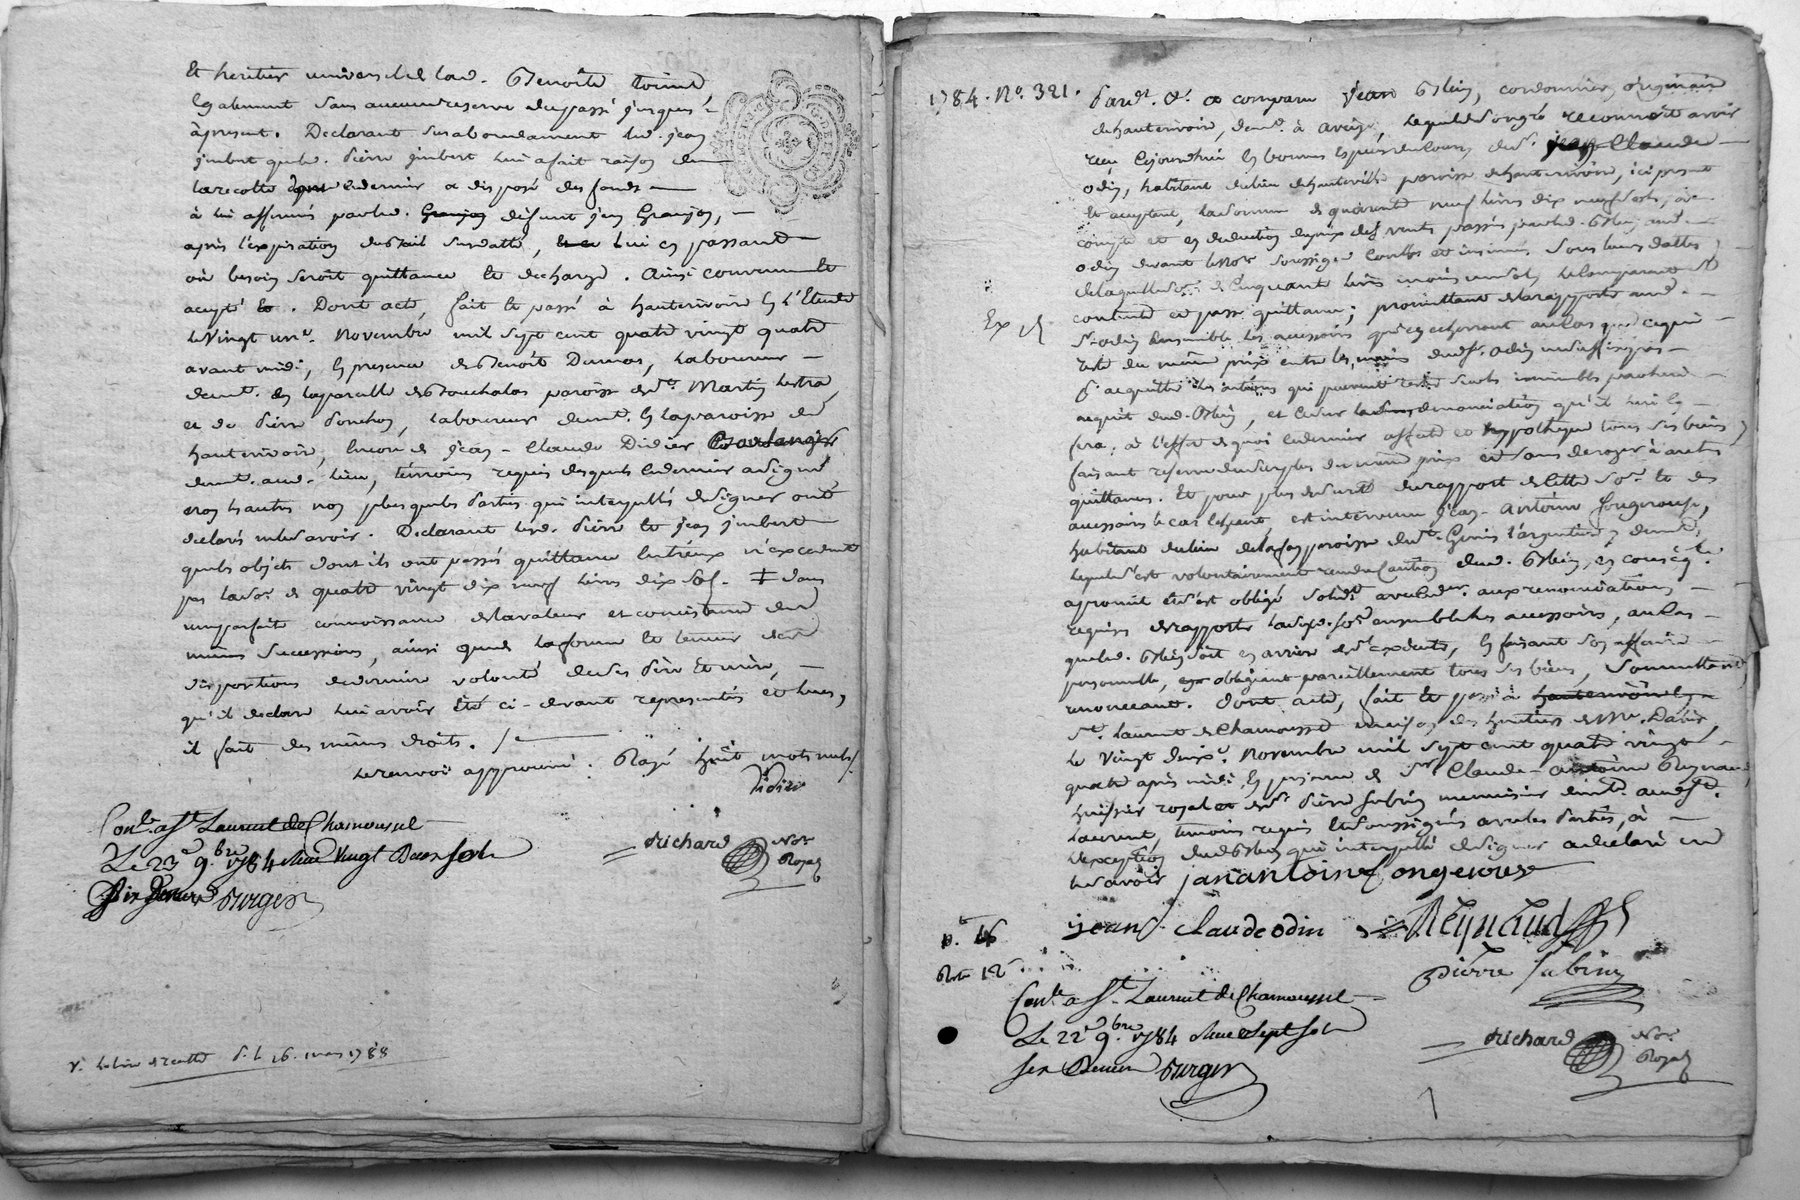 Et heritier universel de lad. Benoite
Egalement sans aucune reserve du passé jusques
àpresent. Declarant surabondamment led. jean
jmbert que led. pierre jmbert lui a fait raison de
la recolte que ce dernier a disposé des fonds
à lui affermés par led. defunt jean Granjon,
après l'expiration du bail sus datté, lui en passant
où besoin seroit quittance et decharge. Ainsi convenu et
acepté. Dont acte, fait et passé à hauterivoire En l'Etude
le vingt un.e Novembre mil sept cent quatre vingt quatre
avant midi, En presence de Benoit Dumas, laboureur
demt. en la parcelle de Bouchalas paroisse de St. Martin Lestra
et de pierre ponchon, laboureur demt. En la paroisse de
hauterivoire, Encore de jean-Claude Didier
demt. aud. lieu, témoins requis desquels ce dernier a signé
non l'autre non plus que les parties qui interpellés de signer ont
declaré ne le savoir. Declarant lesd. pierre et jean jmbert
que les objets dont ils ont passés quittance entr'eux n'excedent
pas la so. de quatre vingt dix neuf livres dix sols. ‡ dans
une parfaite connoissance de la valeur et consistance des
mêmes successions, ainsi que de la forme et teneur des
dispositions de derniere volonté de ses père Et mère,
qu'il declare lui avoir été ci-devant representés et lues,
il fait des mêmes droits.
Le renvoi approuvé. Rayé huit mots nuls
Didier
Conlé. a St Laurent de Chamousset
Le 23e 9.bre 1784 Reçu Vingt Deux sols
Six Deniers Durgen
Richard Nore
Royal
26 mars 1788
1784. No. 321.
Pardt. &. a comparu jean Blein, cordonnier originaire
de hauterivoire, demt. à aveize, lequel de son gré reconnoit avoir
reçu cejourd'hui En bonnes Especes de cours, de Sr. jean Claude
odin, habitant du lieu de hauteville paroisse de hauterivoire, ici present
Et aceptant, la somme de quarante neuf livres dix neuf sols, à
compte et en deduction du prix des ventes passés par led. Blein aud.
odin devant le No.re soussigné Conllés et insinués sous leurs dattes,
de laquelle so. de Cinquante livres moins un sol, le Comparant Est
content et passe quittance; promettant de la rapporter aud.
Sr. odin Ensemble les accessoires
reste du même prix entre les mains dud. Sr. odin
s'acquitter des interets qui pourront
acquit dud. Blein, et ce sur denonciation qu'il lui en
fera, à l'effet de quoi ce dernier affecte et hypotheque tous ses biens,
faisant reserve du surplus du même prix et sans deroger à autres
quittances. Et pour plus de sureté du rapport de cette so. et des
accessoires le cas Echeant est intervenu jean-antoine fongerouse,
habitant du lieu de paroisse de St. Genis l'argentiere, demt.
lequel s'est volontairement rendu Caution dud. Blein, en conséqce.
a promis et s'est obligé solidt. avec led. aux renonciations
requises de rapporter lad. so. ensemble les accessoires, au cas
que led. Blein soit en arriere de l'executer, En faisant son affaire
personnelle, obligeant pareillement tous ses biens, soumettant,
renonceant. Dont acte, fait et passé à
St. laurent de Chamousset maison des heritiers de Me. David
Le vingt deuxe. Novembre mil sept cent quatre vingt
quatre après midi, En presence de Sr. Claude-antoine Reynaud,
huissier royal et de Sr. pierre Subrin menuisier demt. aud. St.
Laurent, temoins requis Et soussignés avec les parties, à
l'exception dud. Blein qui interpellé de signer a declaré ne
le savoir janantoine fongerouse
jean claude odin Reynaud
pierre subrin
Conlé a St. Laurent de Chamousset
Le 22e 9.bre 1784 Reçu Sept sols
Six Deniers Durgen
Richard Nore
Royal